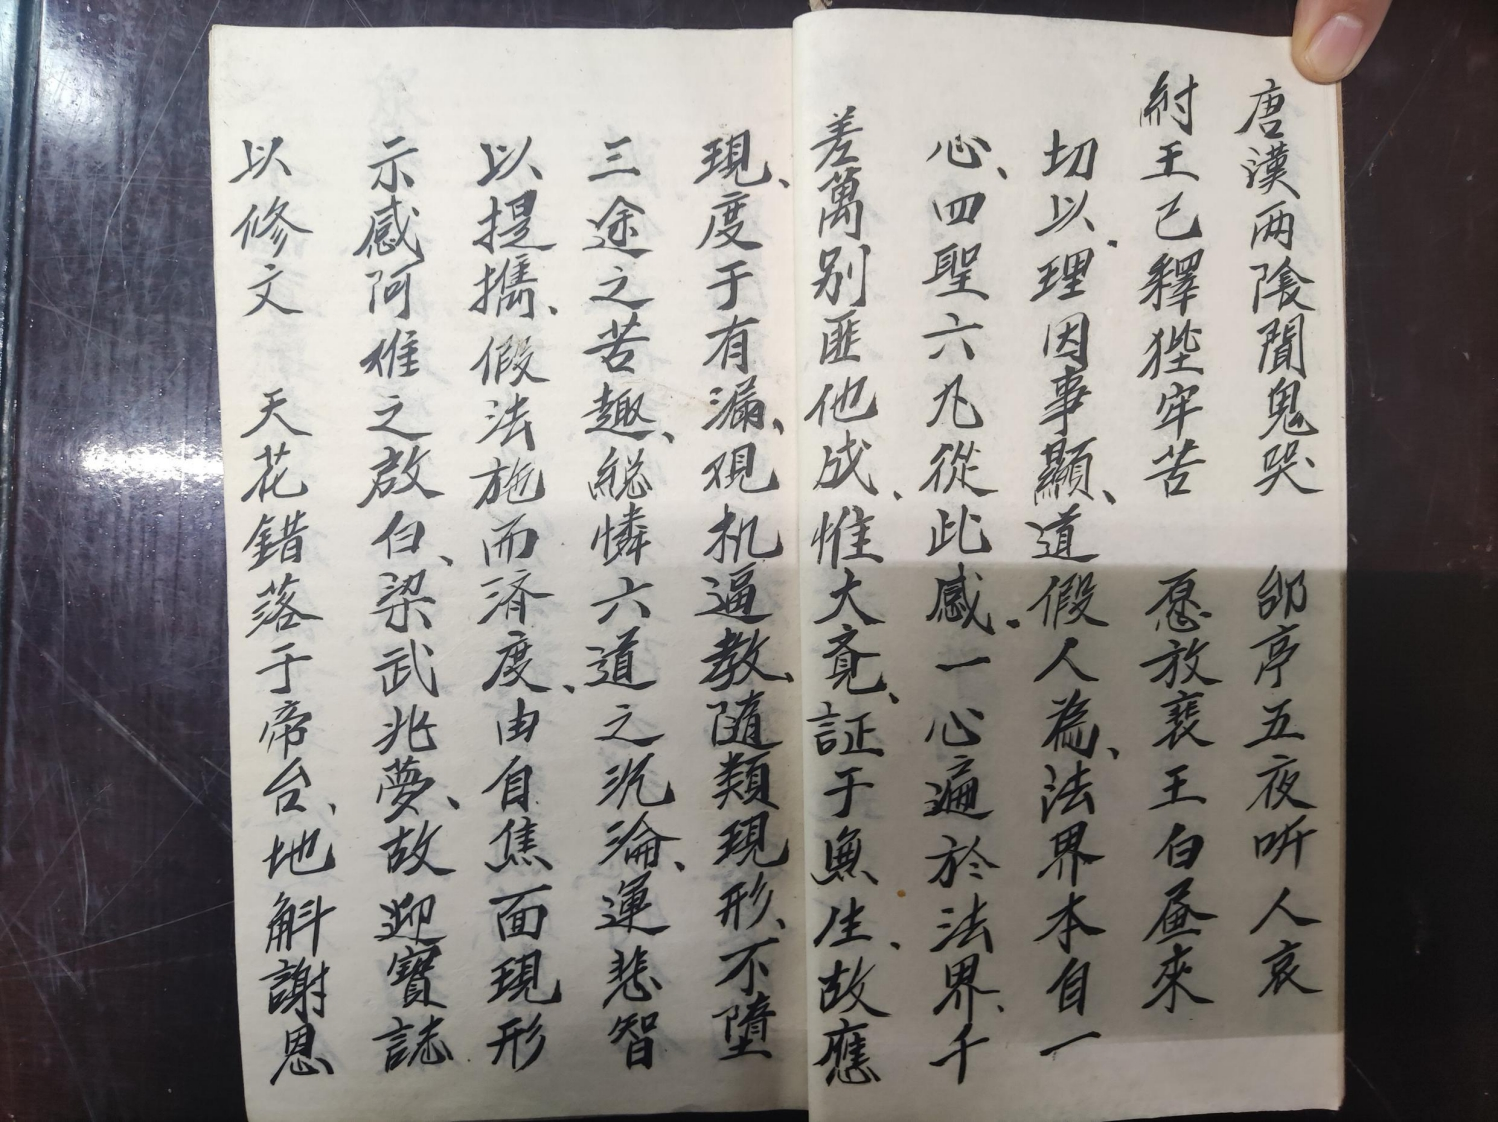 唐漢两陰聞鬼哭　邰亭五夜听人哀
紂王已釋狴牢苦　愿放裴王白昼來
切以、理因事顯、道假人為、法界本自一
心、四聖六凡從此感、一心遍於法界、千
差萬別匪他成、惟大覺、証于無生、故應
現、度于有漏、覌机逼教、隨類現形、不墮
三途之苦趣、総憐六道之沉淪、運悲智
以提携、假法施而济度、由自焦面現形
示感阿难之啟白、梁武兆夢、故迎寶誌
以修文　天花錯落于帝台、地斛謝恩